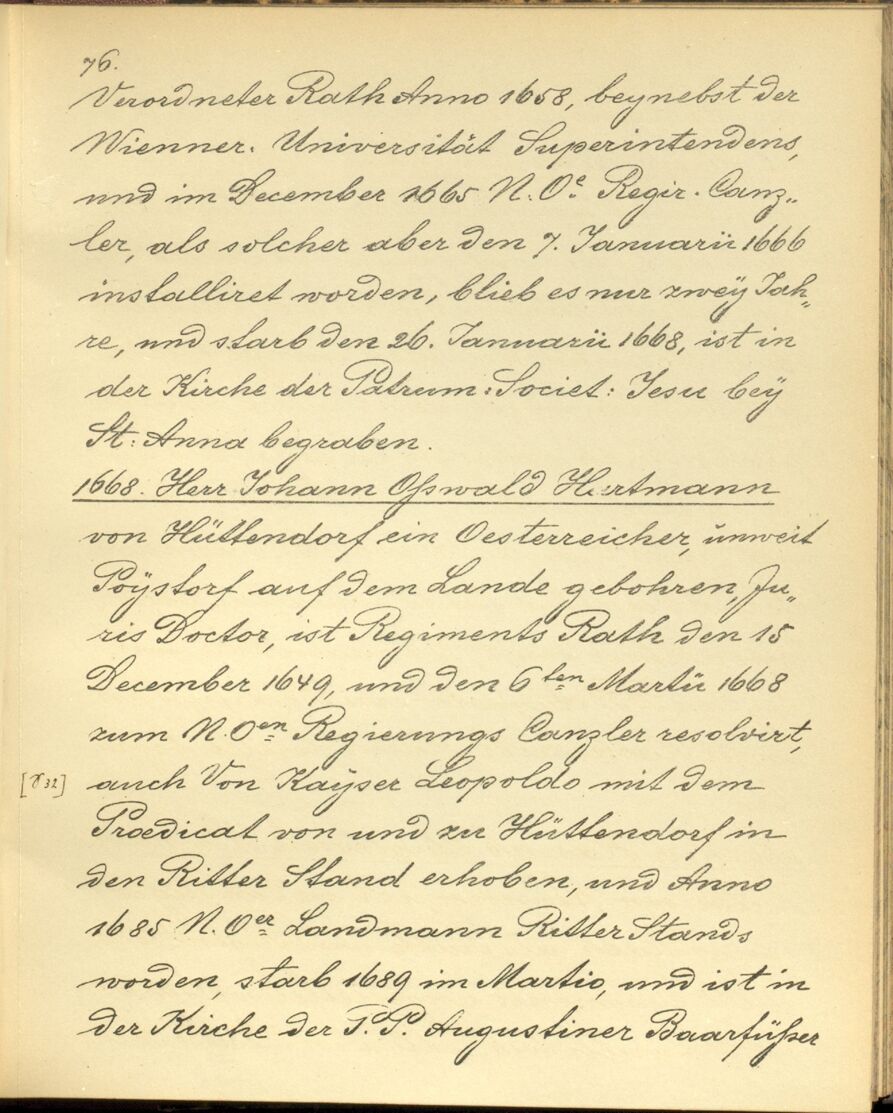 76.
Verordneter Rath Anno 1658, beynebst der
Wienner. Universität Superintendens,
und im December 1665 N. Oe. Regir. Canz„
ler, als solcher aber den 7. Januarii 1666
installiret worden, blieb es nur zweÿ Jah„
re, und starb den 26. Januarii 1668, ist in
der Kirche der Patrum: Societ: Jesu beÿ
St: Anna begraben.
1668. Herr Johann Oßwald
von Hüttendorf ein Oesterreicher, unweit
Poÿstorf auf dem Lande gebohren, Ju„
ris Doctor, ist Regiments Rath den 15
December 1649, und den 6ten Martii 1668
zum N. Oen Regierungs Canzler resolvirt,
[γ 32] auch Von Kaÿser Leopoldo mit dem
Prædicat von und zu Hüttendorf in
den Ritter Stand erhoben, und Anno
1685 N. Oer Landmann Ritter Stands
worden, starb 1689 im Martio, und ist in
der Kirche der P. P. Augustiner Baarfüßer